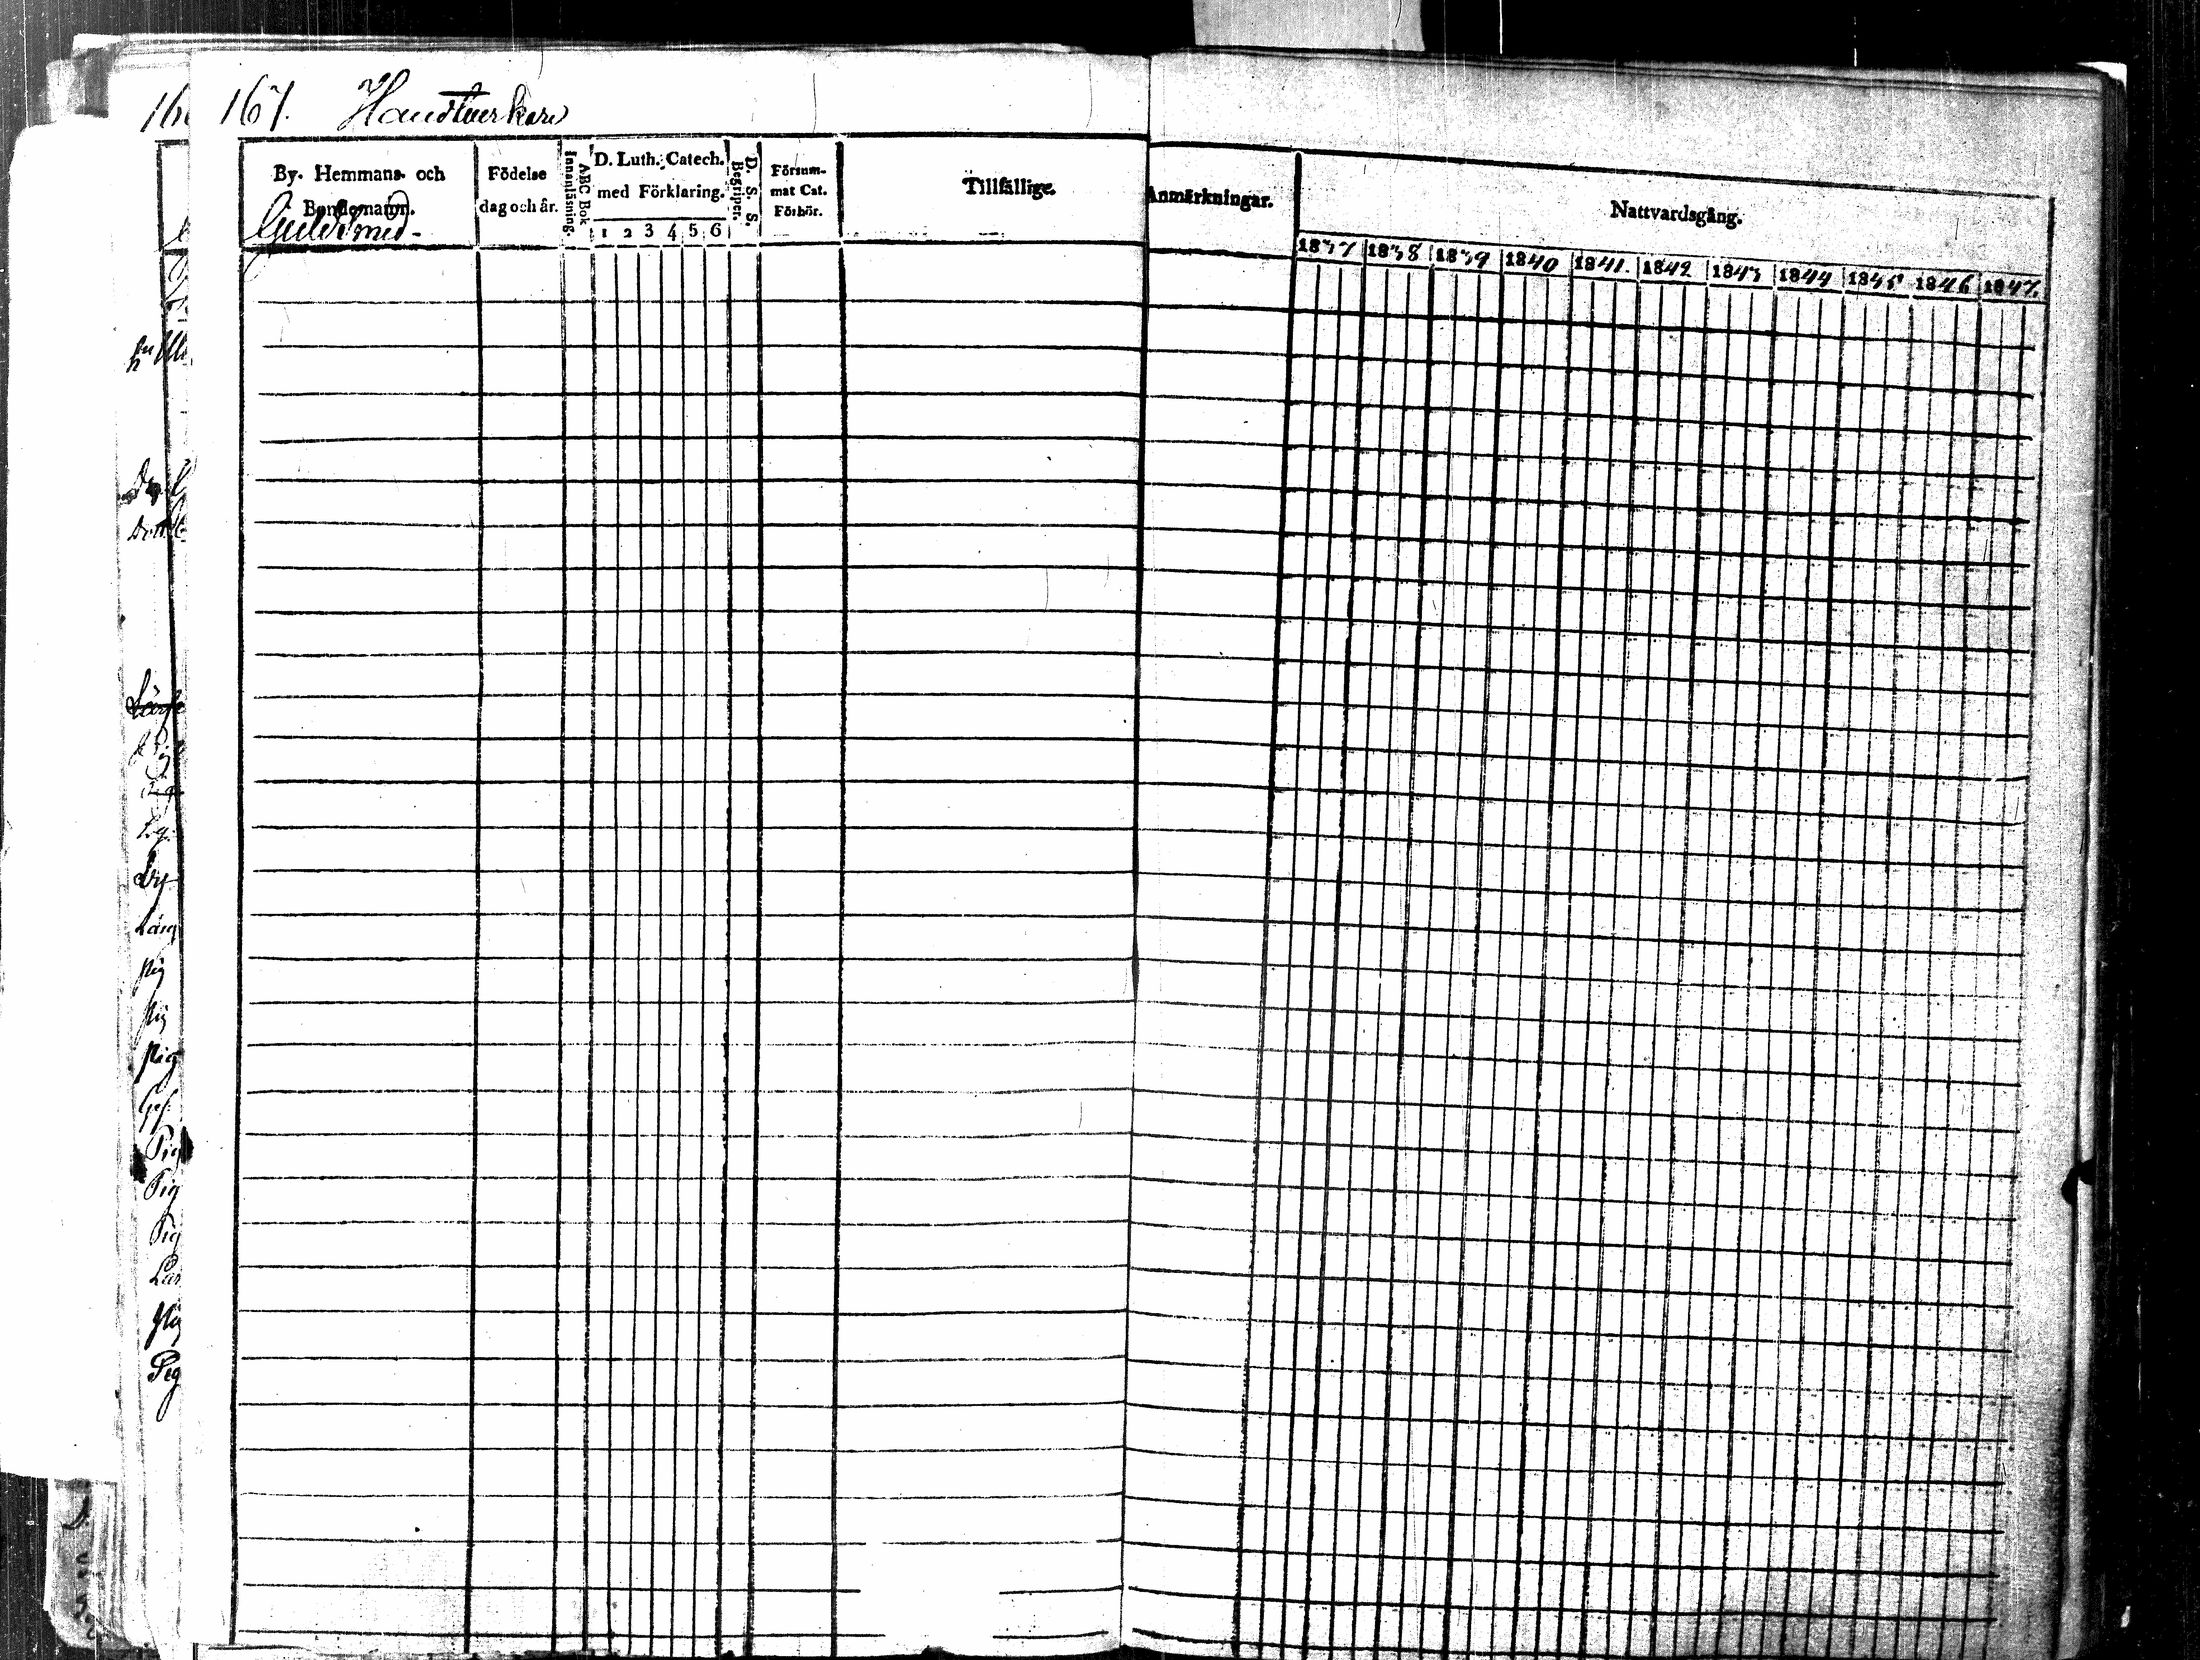 167. Handtverkare
By. Hemmans- och Bondenamn.
Guldsmed-
Födelse dag och år.
Innanläsning.
ABC Bok
D. Luth. Catech. med Förklaring.
1 2 3 4 5 6
D. S. S. Begriper.
Försummat Cat. Förhör.
Tillfällige.
Anmärkningar.
Nattvardsgång.
1837 1838 1839 1840 1841. 1842 1843 1844 1845 1846 1847.
16
Pig
Pig
Pig
Pig